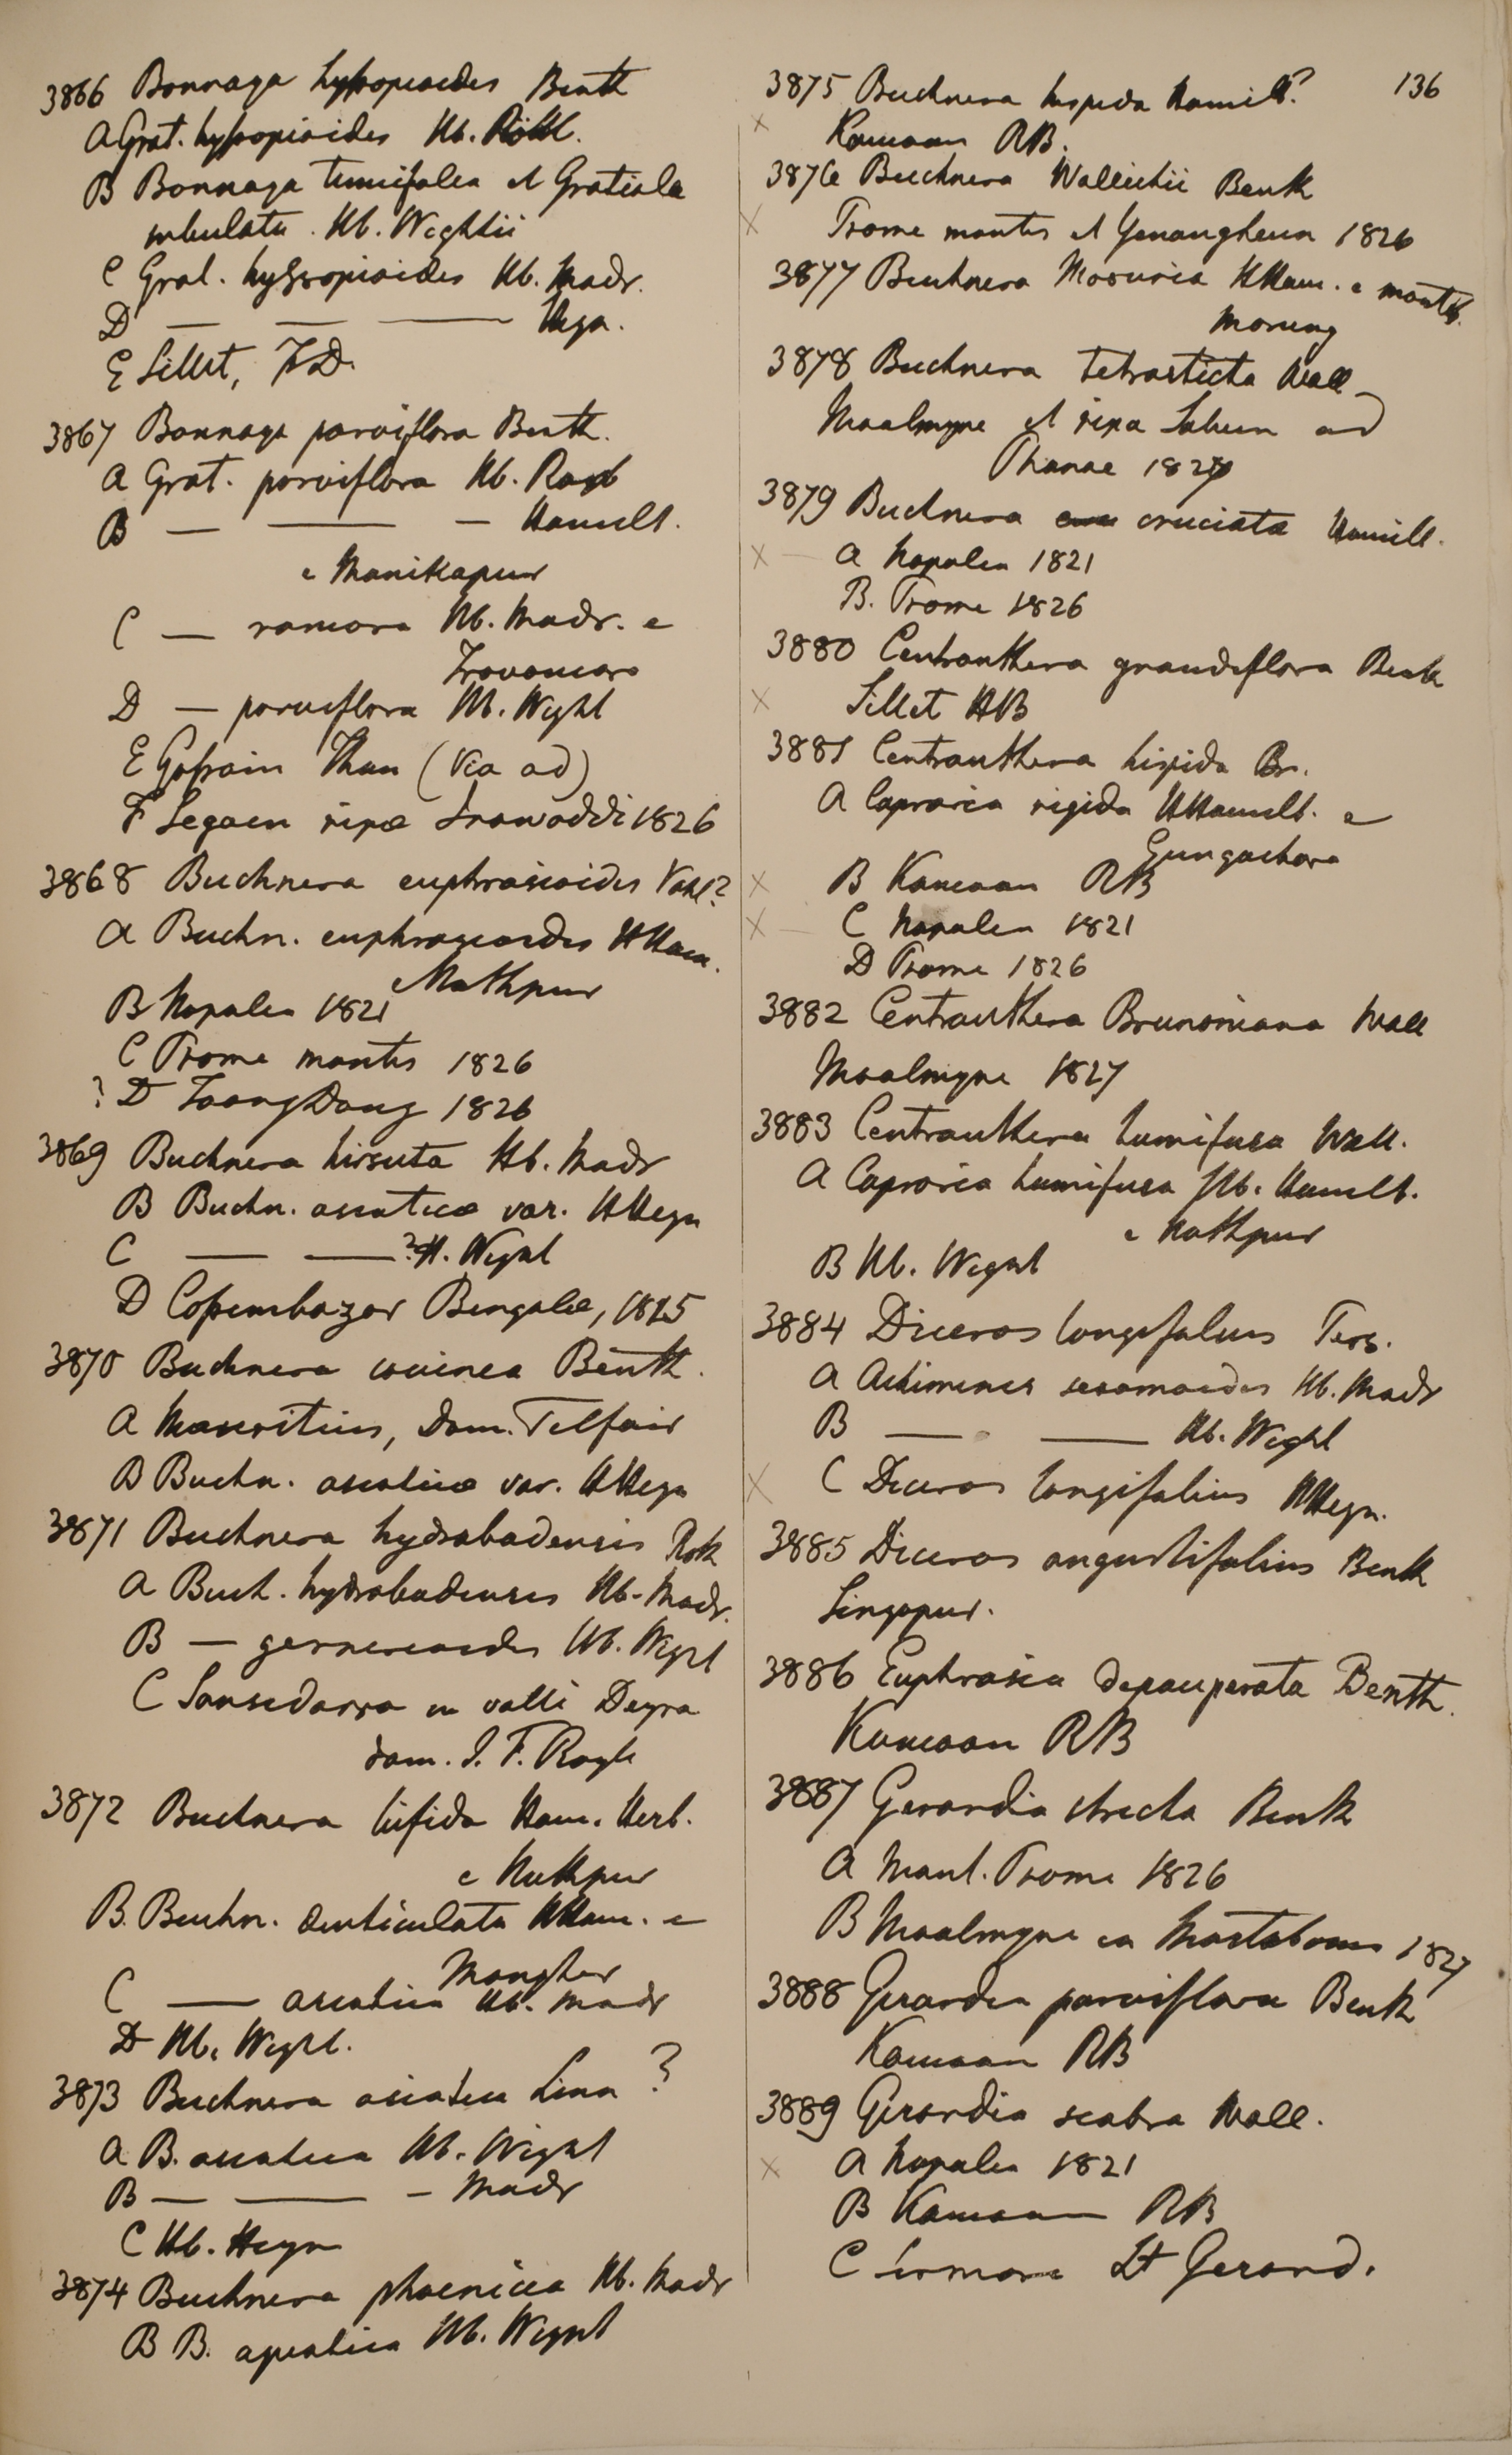 3866 Bonnaya hyssopioides Benth
A Grat. hyssopioides Hb. Rottl.
B Bonnaya tenuifolia et Gratiola
Hb. Wightii
C Grat. hyssopioides Hb. Madr.
D — — — Heyn.
E Sillet, F.D.
3867 Bonnaya parviflora Benth.
A Grat. parviflora Hb. Roxb
B — — — Hamilt.
e Manikapur
C — ramosa Hb. Madr. e
Travancore
D — parviflora Hb. Wight
E Gossain Than (via ad)
F Segaen ripæ Irawaddi 1826
3868 Buchnera euphrasioides Vahl?
A Buchn. euphrasioides HHam.
e Nathpur
B Napalea 1821
C Prome montes 1826
? D Taong Dong 1826
3869 Buchnera hirsuta Hb. Madr
B Buchn. asiatica var. HHeyn
C — — ? H. Wight
D Cossimbazar Bengalæ, 1815
3870 Buchnera coccinea Benth.
A Mauritius, Dom. Telfair
B Buchn. asiatica var. HHeyn
3871 Buchnera hydrabadensis Roth
A Buch. hydrabadensis Hb. Madr.
B — gesnerioides Hb. Wight
C Sansedarra in valli Deyra
dom. J. F. Royle
3872 Buchnera bifida Ham. Herb.
e Nathpur
B. Buchn. denticulata HHam. e
Mongher
C — asiatica Hb. Madr
D Hb. Wight.
3873 Buchnera asiatica Linn ?
A B. asiatica Hb. Wight
B — — — Madr
C Hb. Heyn
3874 Buchnera phoenicea Hb. Madr
B B. asiatica Hb. Wight
136
3875 Buchnera hispida Hamilt?
x Kamaon RB.
3876 Buchnera Wallichii Benth
x Prome montes et Yenangheun 1826
3877 Buchnera Mosuria HHam. e montib.
Morung
3878 Buchnera tetrasticta Wall
Moalmyne et ripa Saluen ad
Phanoe 1827
3879 Buchnera cruciata Hamilt.
x — A Napalea 1821
B. Prome 1826
3880 Centranthera grandiflora Benth
x Sillet HB
3881 Centranthera hispida Br.
A Capraria rigida HHamilt. e
Gungachora
x B Kamaon RB
x — C Napalea 1821
D Prome 1826
3882 Centranthera Brunoniana Wall
Moalmyne 1827
3883 Centranthera humifusa Wall.
A Capraria humifusa Hb. Hamilt.
e Nathpur
B Hb. Wight
3884 Diceros longifolius Pers.
A Achimenes sesamoides Hb. Madr
B — — Hb. Wight
x C Diceros longifolius HHeyn.
3885 Diceros angustifolius Benth
Singapur.
3886 Euphrasia depauperata Benth.
Kamaon RB
3887 Gerardia stricta Benth
A Mont. Prome 1826
B Moalmyne in Martabania 1827
3888 Gerardia parviflora Benth
Kamaon RB
3889 Gerardia scabra Wall.
x A Napalea 1821
B Kamaon RB
C Sirmore Lt Gerard.